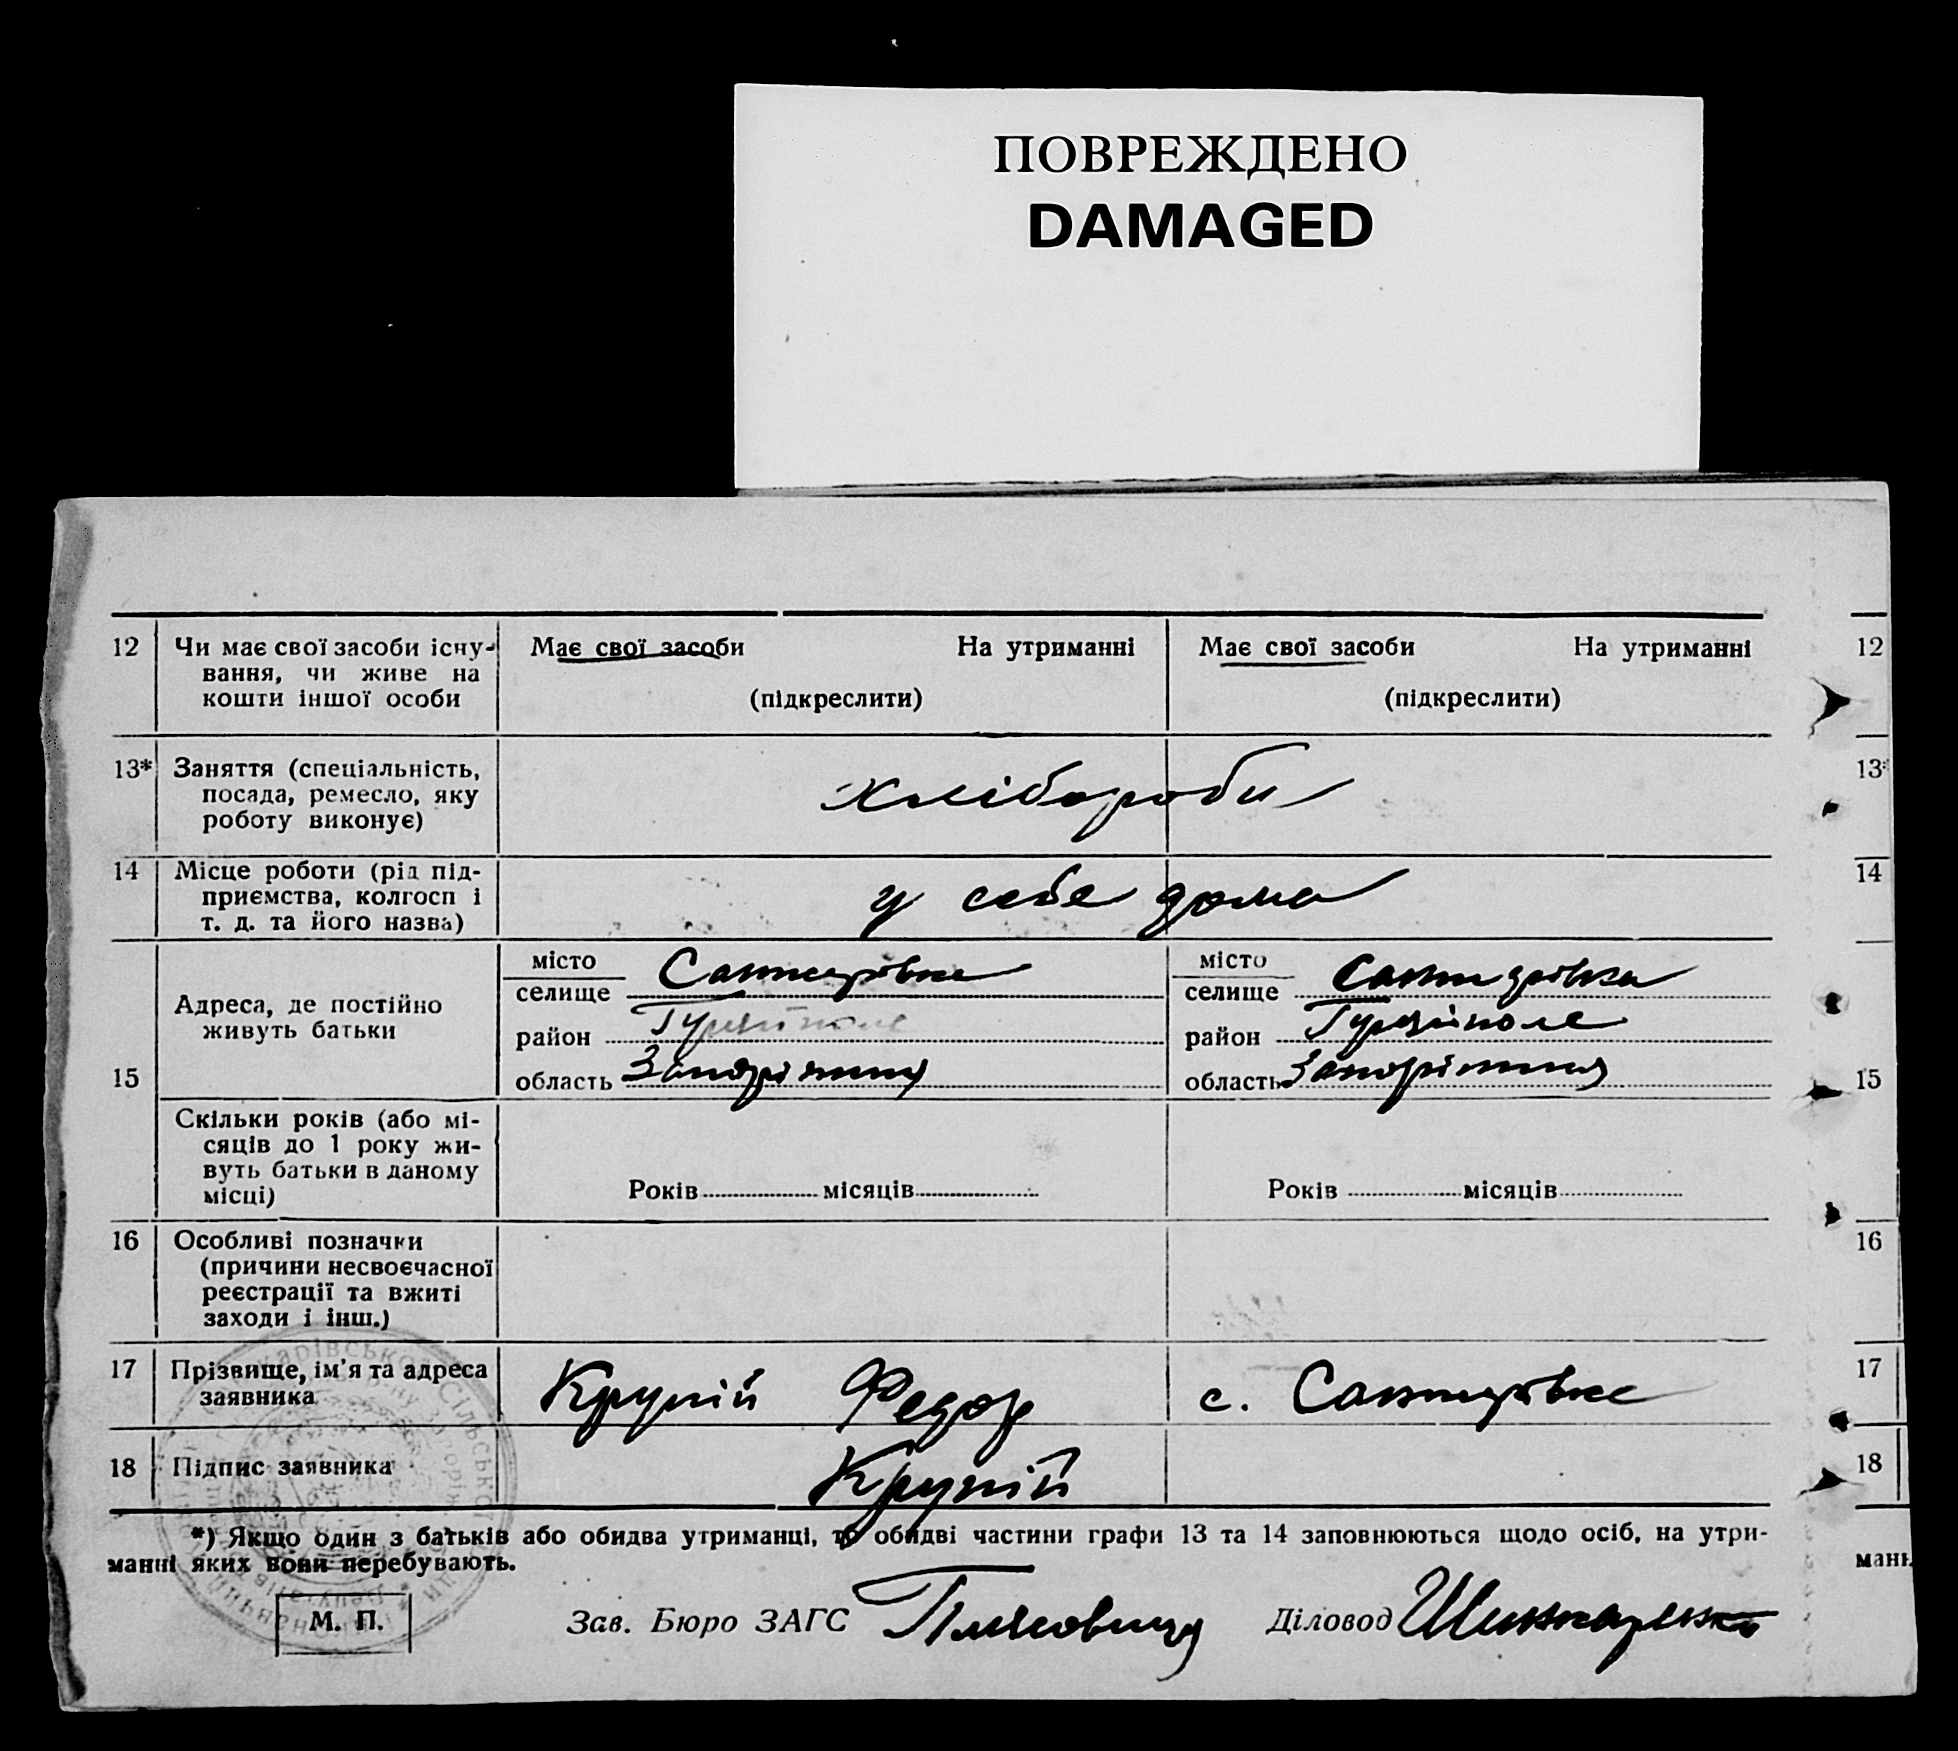 ПОВРЕЖДЕНО
DAMAGED
12 Чи має свої засоби існу- Має свої засоби На утриманні Має свої засоби На утриманні 12
вання, чи живе на
кошти іншої особи (підкреслити) (підкреслити)
13* Заняття (спеціальність, 13*
посада, ремесло, яку хлібороби
роботу виконує)
14 Місце роботи (рід під- 14
приємства, колгосп і у себе дома
т. д. та його назва)
місто місто
селище селище
Адреса, де постійно
живуть батьки
район Гуляйполе район Гуляйполе
15 область Запоріжжя область Запоріжжя 15
Скільки років (або мі-
сяців до 1 року жи-
вуть батьки в даному
місці) Років місяців Років місяців
16 Особливі позначки 16
(причини несвоєчасної
реєстрації та вжиті
заходи і інш.)
17 Прізвище, ім'я та адреса Крупій Федор с. 17
заявника
18 Підпис заявника Крупій 18
*) Якщо один з батьків або обидва утриманці, то обидві частини графи 13 та 14 заповнюються щодо осіб, на утри-
манні яких вони перебувають. ман
М. П. Зав. Бюро ЗАГС Діловод Шинкаренко